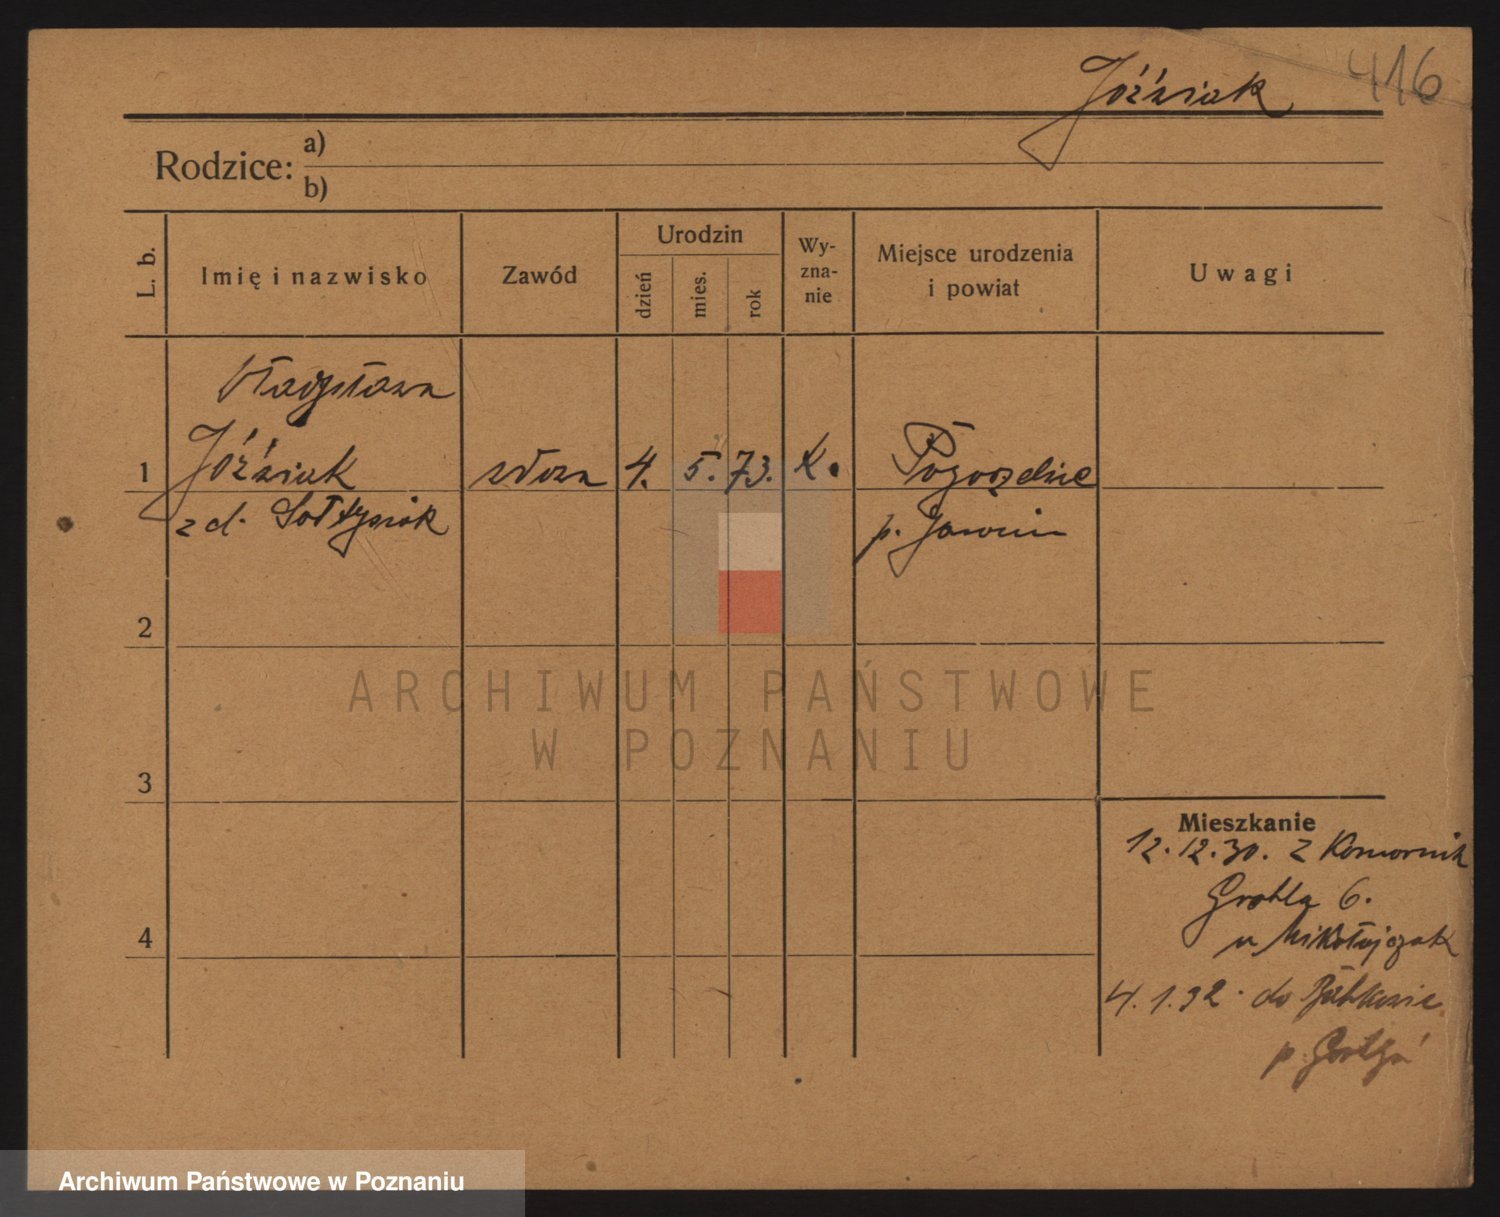 Jóźwiak 416
Rodzice: a)
b)
L. b. Imię i nazwisko Zawód Urodzin dzień mies. rok Wy-zna-nie Miejsce urodzenia i powiat Uwagi
Władysława
1 Jóźwiak wdowa 4. 5. 73. K. Pogorzelice
z d. Sołtysiak p. Jarocin
2
ARCHIWUM PAŃSTWOWE
W POZNANIU
3
Mieszkanie
12.12.30. z Komornik
Grobla 6.
4
u Mikołajczak
4.1.32. do
p.
Archiwum Państwowe w Poznaniu